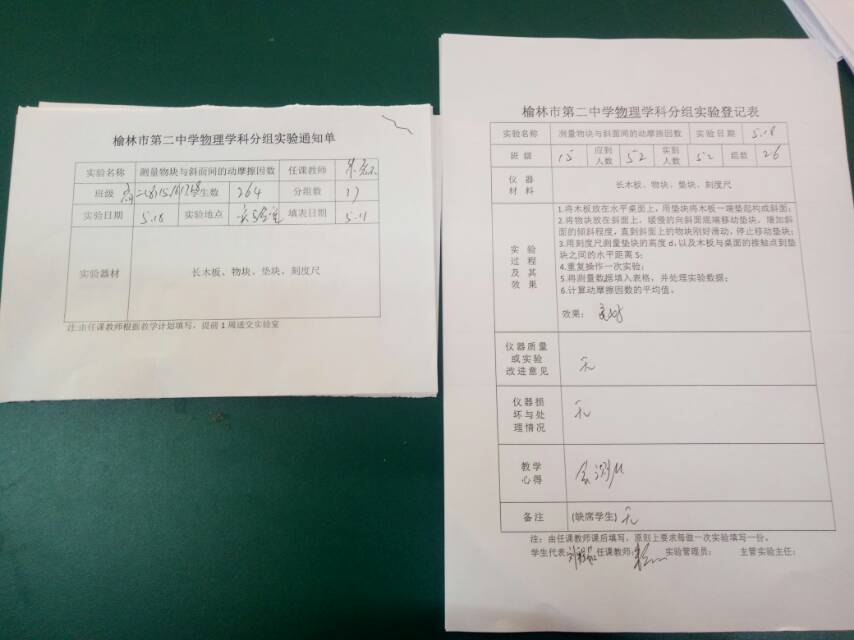 榆林市第二中学物理学科分组实验通知单
实验名称 测量物块与斜面间的动摩擦因数 任课教师
班级 学生数 264 分组数 17
实验日期 5.18 实验地点 填表日期 5.11
实验器材 长木板、物块、垫块、刻度尺
注:由任课教师根据教学计划填写，提前1周递交实验室
榆林市第二中学物理学科分组实验登记表
实验名称 测量物块与斜面间的动摩擦因数 实验日期 5.18
班级 15 应到人数 52 实到人数 52 组数 26
仪器材料 长木板、物块、垫块、刻度尺
实验过程及其效果
1.将木板放在水平桌面上，用垫块将木板一端垫起构成斜面；
2.将物块放在斜面上，缓慢的向斜面底端移动垫块，增加斜
面的倾斜程度，直到斜面上的物块刚好滑动，停止移动垫块；
3.用刻度尺测量垫块的高度d，以及木板与桌面的接触点到垫
块之间的水平距离S；
4.重复操作一次实验；
5.将测量数据填入表格，并处理实验数据；
6.计算动摩擦因数的平均值。
效果：良好
仪器质量或实验改进意见 无
仪器损坏与处理情况 无
教学心得 会测μ
备注 (缺席学生) 无
注：由任课教师课后填写，原则上要求每做一次实验填写一份。
学生代表: 任课教师: 实验管理员: 主管实验主任: